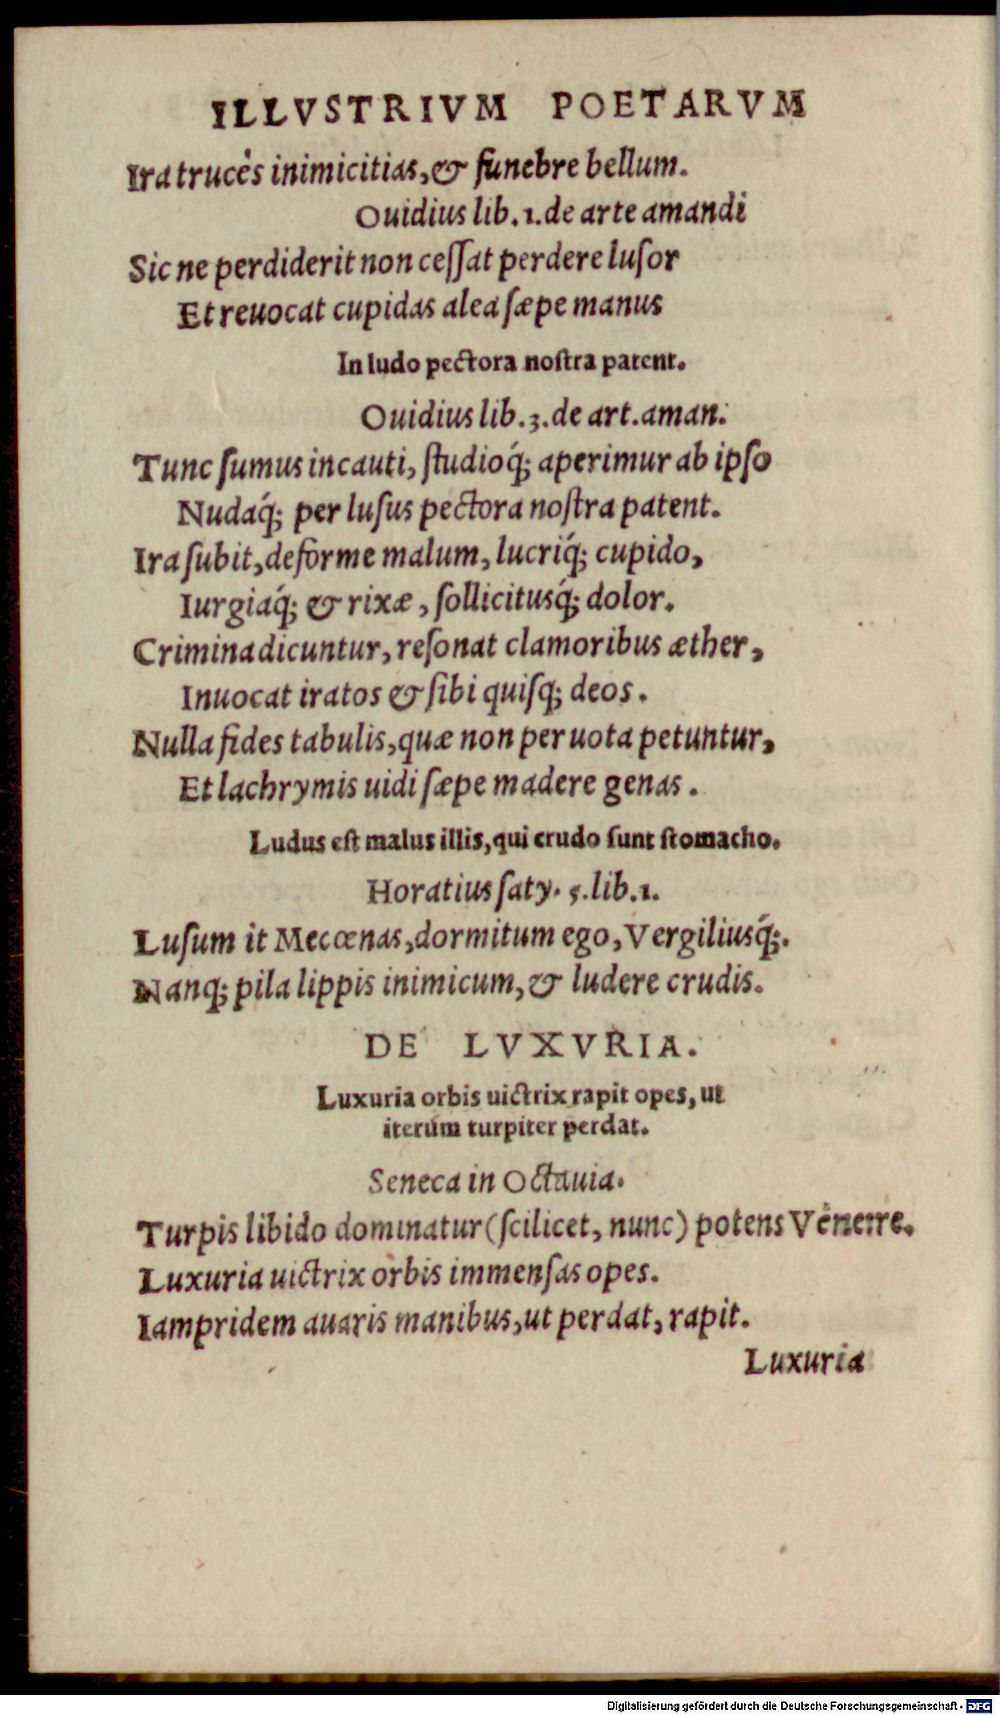 ILLVSTRIVM POETARVM
Ira truces inimicitias, & funebre bellum.
Ouidius lib. 1. de arte amandi
Sic ne perdiderit non ceſſat perdere luſor
Et reuocat cupidas alea ſæpe manus
In ludo pectora noſtra patent.
Ouidius lib. 3. de art. aman.
Tunc ſumus incauti, ſtudioq́; aperimur ab ipſo
Nudaq́; per luſus pectora noſtra patent.
Ira ſubit, deforme malum, lucriq́; cupido,
Iurgiaq́; & rixæ, ſollicitusq́; dolor.
Crimina dicuntur, reſonat clamoribus æther,
Inuocat iratos & ſibi quiſq; deos.
Nulla fides tabulis, quæ non per uota petuntur,
Et lachrymis uidi ſæpe madere genas.
Ludus eſt malus illis, qui crudo ſunt ſtomacho.
Horatius ſaty. 5. lib. 1.
Luſum it Mecœnas, dormitum ego, Vergiliusq́;.
Nanq; pila lippis inimicum, & ludere crudis.
DE LVXVRIA.
Luxuria orbis uictrix rapit opes, ut
iterum turpiter perdat.
Seneca in Octauia.
Turpis libido dominatur (ſcilicet, nunc) potens Venere.
Luxuria uictrix orbis immenſas opes.
Iampridem auaris manibus, ut perdat, rapit.
Luxuria
Digitalisierung gefördert durch die Deutsche Forschungsgemeinschaft - DFG